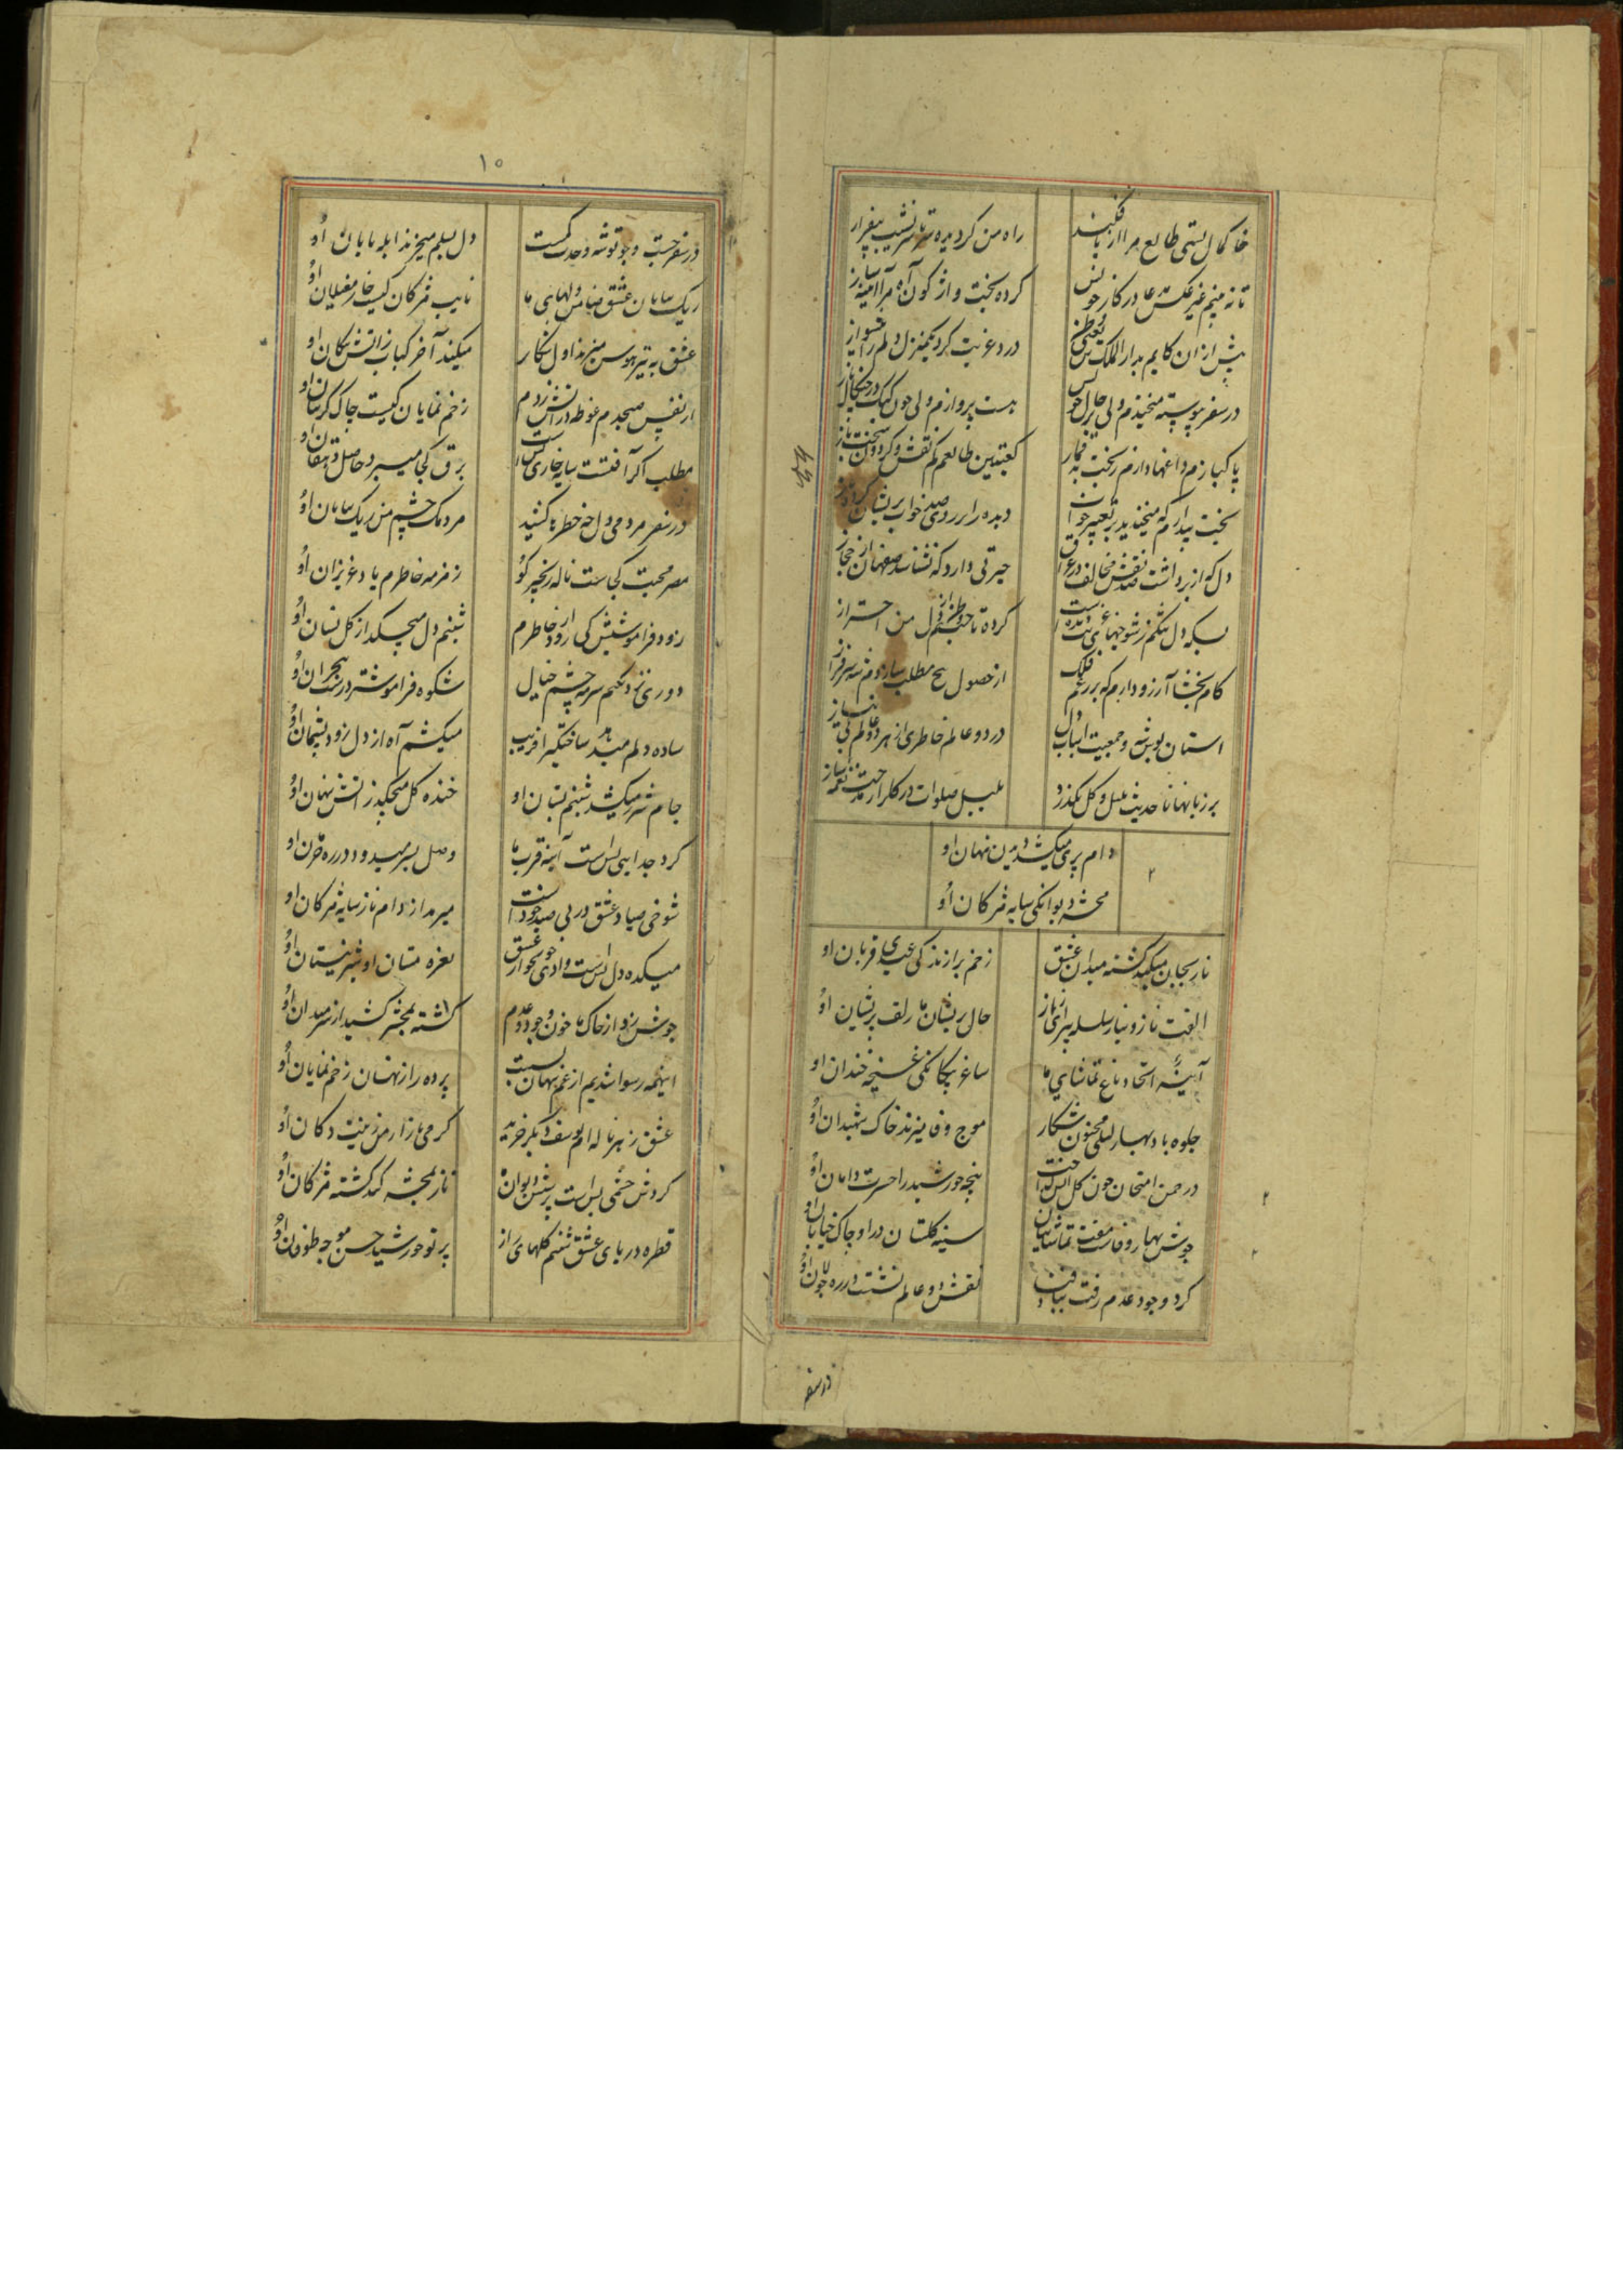 خاکمال پستی طالع مرا از پا فکند
راه من گردیده سرتاسر نشیب بیفراز
تا نه بینم غیر عکس مدعا در کار خویش
کرده بخت واژگون آه مرا آئینه ساز
پیش ازان کایم بدار الملک
درد غربت کرد یکمنزل دلم را پیشواز
در سفر پیوسته میخندم ولی بر حال خویش
هست پروازم ولی چون کبک در چنگال باز
پاکبازم داغها دارم ز بخت بد قمار
کعبتین طالعم کم نقش و گردون سخت باز
بخت بیدارم که میخندید بر تعبیر خواب
دیده را بر روی صد خواب پریشان کرد باز
دل که از برداشت صد نقش مخالف در عراق
حیرتی دارد که نشناسد صفاهان از حجاز
بسکه دل تنگم ز شوخیهای
کرده تا چشم از دل من احتراز
کام بخشا آرزو دارم که بر رغم فلک
از حصول پنج مطلب سازدم سرفراز
آستان بوسی و جمعیت اسباب دل
در دو عالم خاطری از هر دو عالم بی نیاز
بر زبانها تا حدیث بلبل و گل بگذرد
بلبل صلوات در گلزار مدحت نغمه ساز
۲
دام پری میکشد دیدن پنهان او
محشر دیوانگی سایه مژگان او
ناز بجان میکند کشته میدان عشق
زخم برازندگی عیدی قربان او
الفت ناز و نیاز سلسله پیرای راز
حال پریشان ما زلف پریشان او
آیینهٔ اتحاد باغ تماشای ما
ساغر یکانگی غنچه خندان او
جلوه باد بهار لیلی مجنون شکار
موج وفا میزند خاک شهیدان او
در چمن امتحان چون گل
پنجه خورشید را حسرت دامان او
جوش بهار وفاست مفت تماشائیان
سینه گلستان دراو چاک خیابان او
گرد وجود عدم رفت بباد فنا
نقش دو عالم نشست در ره جولان او
در سفر
۱۵
در سفر جست و جو توشه وحدت کمست
دل بدلم میخرند ابله بابان او
ریک بیابان عشق ضامن دلهای ما
نایب مژگان کیست خار مغیلان او
عشق به تیر هوس میزند اول شکار
میکند آخر کباب ز آتش پیکان او
از نفس صبحدم غوطه در آتش زدم
زخم نمایان کیست چاک گریبان او
مطلب اگر آفتست سایه خاری بس است
برق کجا میبرد حاصل دهقان او
در سفر مردمی داغ خطر ناکشید
مردمک چشم من ریک بیابان او
مصر محبت کجاست ناله زنجیر کو
زمزمه خاطرم یاد عزیزان او
زود فراموشیش کی رود از خاطرم
شبنم دل میچکد از گل نسیان او
دوری نزدیکیم سرمه چشم خیال
شکوه فراموشتر درشب هجران او
ساده دلم میدهد ساختگیرا فریب
میکشم آه از دل زود پشیمان او
جام شرر میکشد شبنم بستان او
خنده گل میچکد ز آتش پنهان او
گرد جدایی بس است آینه قرب ما
وصل بسر میدود در ره حرمان او
شوخی صیاد عشق در پی صید خود است
میرمد از دام ناز سایه مژگان او
میکده دل بس است وادی خونخوار عشق
نعره مستان او شیر نیستان او
جوش زد از خاک ما خون وجود و عدم
کشته بمحشر کشید از سر میدان او
اینهمه رسوا شدیم از غم پنهان بست
پرده راز نهان زخم نمایان او
عشق ز هر ناله ام یوسف دیگر خرید
گرمی بازار من زینت دکان او
گردش چشمی بس است پرسش دیوان
ناز بمحشر کند کشته مژگان او
قطره دریای عشق شبنم گلهای راز
پرتو خورشید حسن موجه طوفان او